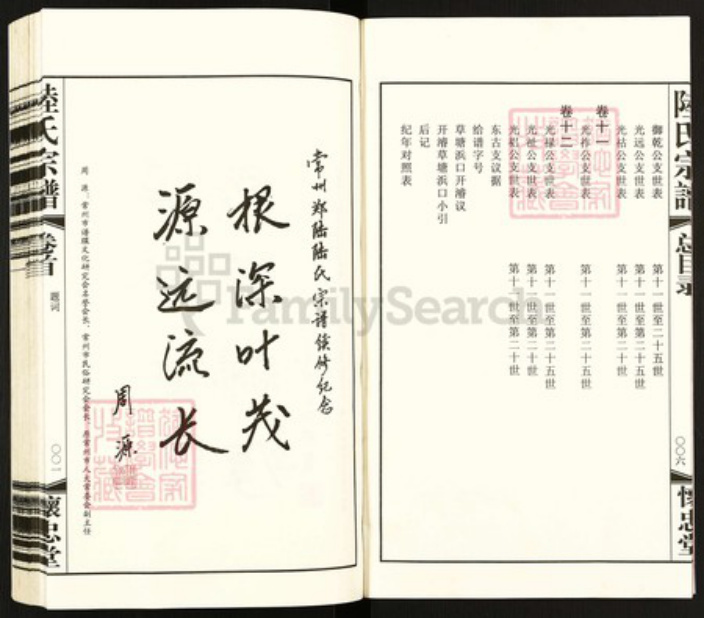 陆氏宗谱
总目录
〇〇六
怀忠堂
御乾公支世表 第十一世至二十五世
光远公支世表 第十一世至第二十五世
光祜公支世表 第十一世至第二十世
卷十一
光祚公支世表 第十一世至第二十五世
卷十二
光禄公支世表 第十一世至第二十五世
光祉公支世表 第十一世至第二十世
光祺公支世表 第十一世至第二十世
东古支议据
绘谱字号
草塘浜口开濬议
开濬草塘浜口小引
后记
纪年对照表
常州郑陆陆氏宗谱续修纪念
根深叶茂
源远流长
周源
周源：常州市谱牒文化研究会名誉会长、常州市民俗研究会会长、原常州市人大常委会副主任
陸氏宗譜
卷首
题词
〇〇一
懷忠堂
FamilySearch